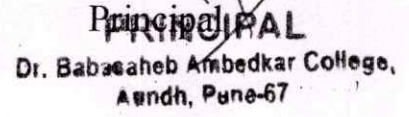 Principal
PRINCIPAL
Dr. Babasaheb Ambedkar College,
Aundh, Pune-67